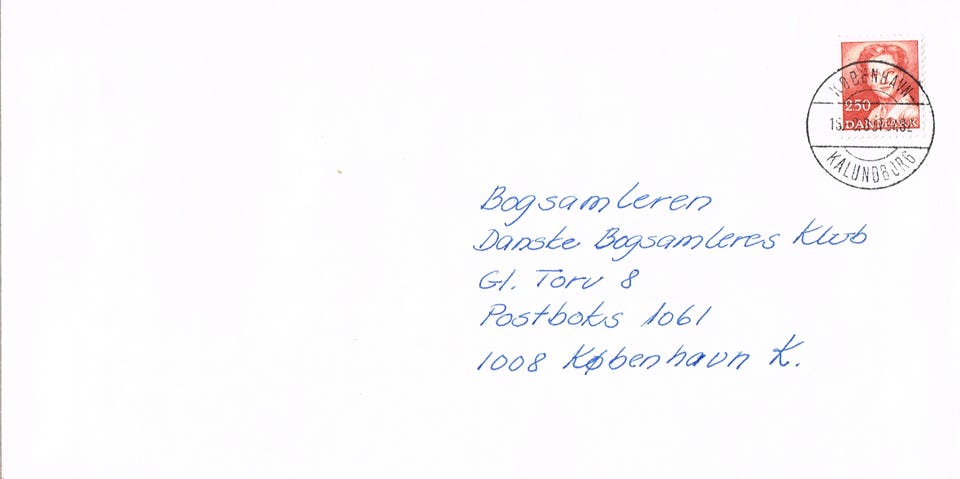 KØBENHAVN-
250
DANMARK
KALUNDBORG
Bogsamleren
Danske Bogsamleres Klub
Gl. Torv 8
Postboks 1061
1008 København K.